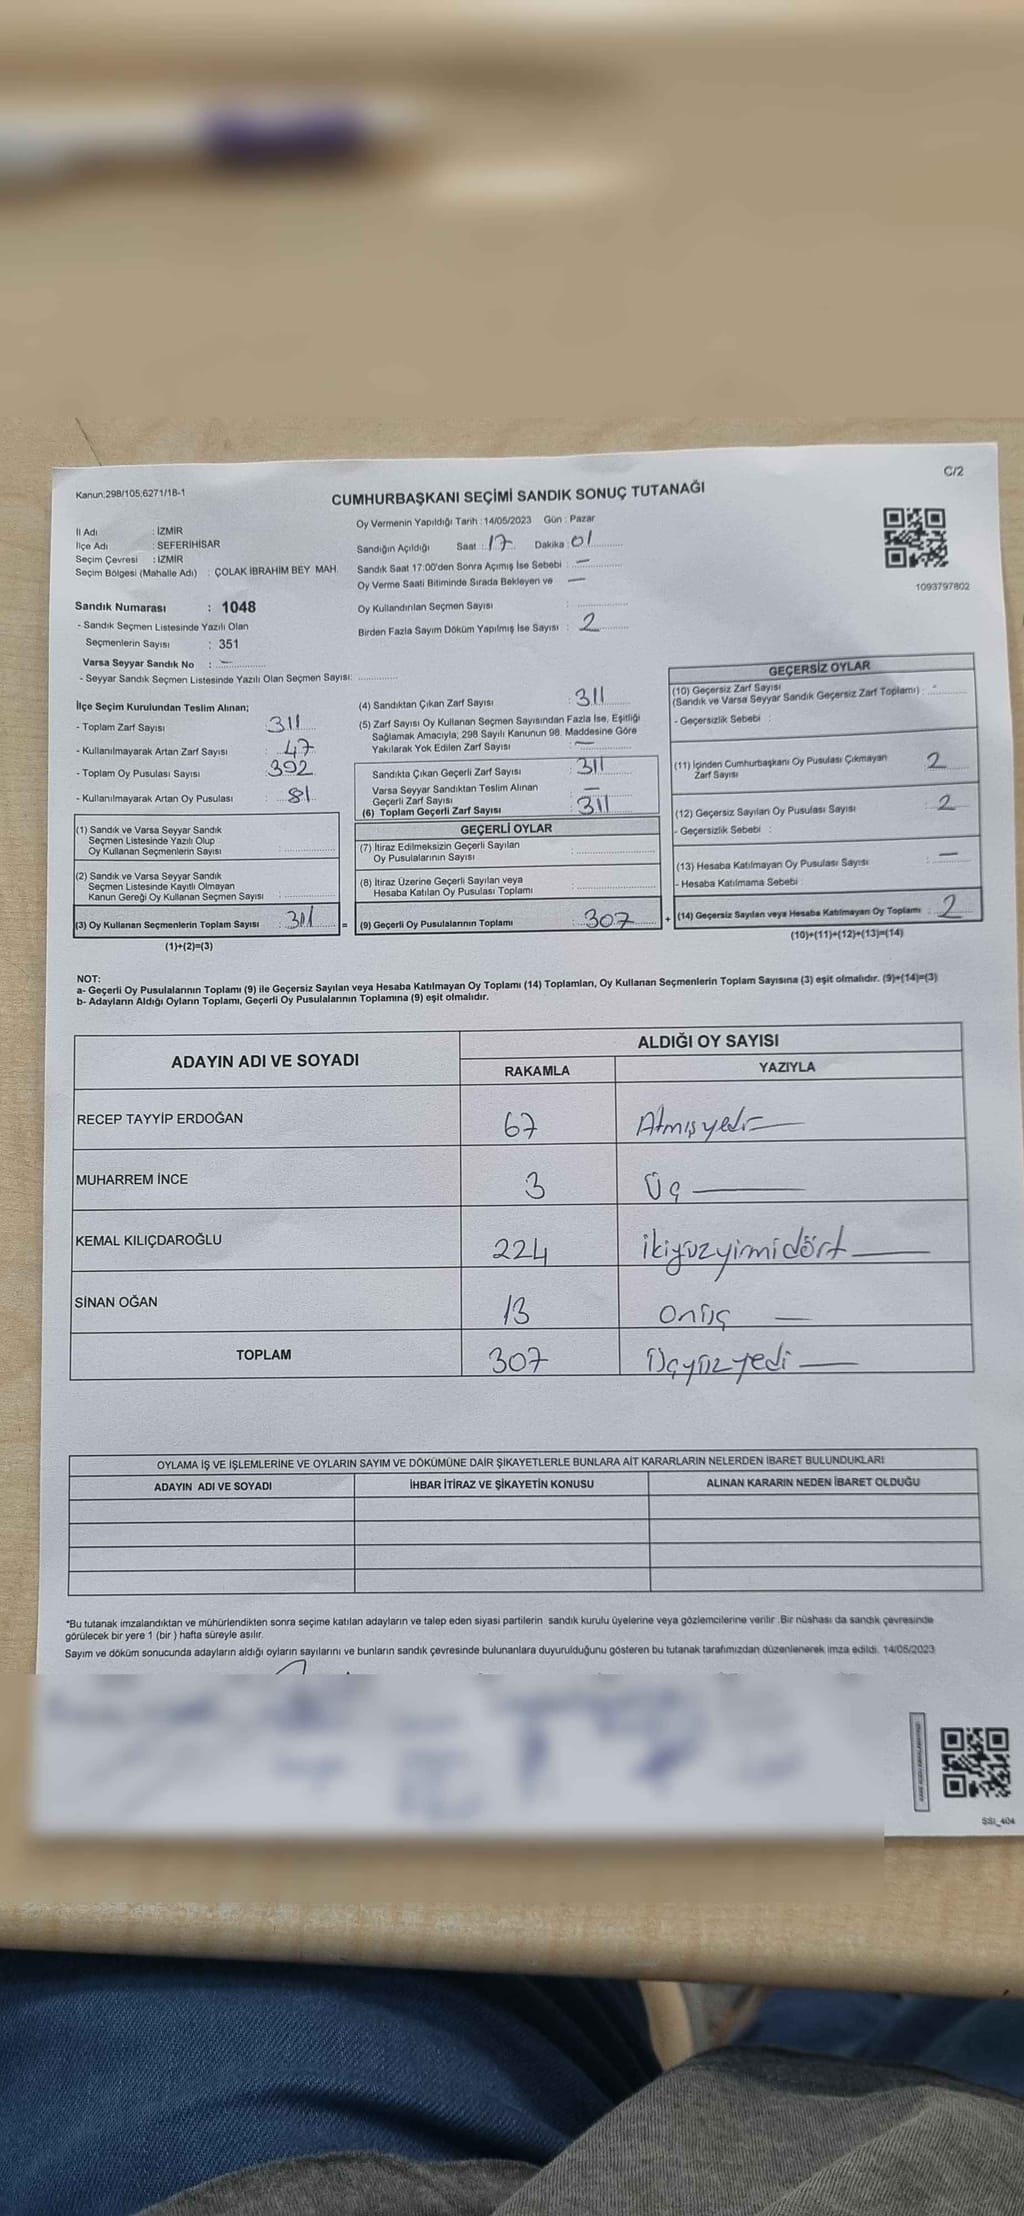 Kanun:298/105;6271/18-1
C/2
CUMHURBAŞKANI SEÇİMİ SANDIK SONUÇ TUTANAĞI
İl Adı : İZMİR
İlçe Adı : SEFERİHİSAR
Seçim Çevresi : İZMİR
Seçim Bölgesi (Mahalle Adı) : ÇOLAK İBRAHİM BEY MAH.
Oy Vermenin Yapıldığı Tarih : 14/05/2023 Gün : Pazar
Sandığın Açıldığı Saat : 17 Dakika : 01
Sandık Saat 17:00'den Sonra Açımış İse Sebebi : —
Oy Verme Saati Bitiminde Sırada Bekleyen ve —
Oy Kullandırılan Seçmen Sayısı :
Birden Fazla Sayım Döküm Yapılmış İse Sayısı : 2
1093797802
Sandık Numarası : 1048
- Sandık Seçmen Listesinde Yazılı Olan
Seçmenlerin Sayısı : 351
Varsa Seyyar Sandık No : —
- Seyyar Sandık Seçmen Listesinde Yazılı Olan Seçmen Sayısı:
İlçe Seçim Kurulundan Teslim Alınan;
- Toplam Zarf Sayısı 311
- Kullanılmayarak Artan Zarf Sayısı : 47
- Toplam Oy Pusulası Sayısı 392
- Kullanılmayarak Artan Oy Pusulası : 81
(1) Sandık ve Varsa Seyyar Sandık
Seçmen Listesinde Yazılı Olup
Oy Kullanan Seçmenlerin Sayısı :
(2) Sandık ve Varsa Seyyar Sandık
Seçmen Listesinde Kayıtlı Olmayan
Kanun Gereği Oy Kullanan Seçmen Sayısı :
(3) Oy Kullanan Seçmenlerin Toplam Sayısı : 311 =
(1)+(2)=(3)
(4) Sandıktan Çıkan Zarf Sayısı : 311
(5) Zarf Sayısı Oy Kullanan Seçmen Sayısından Fazla İse, Eşitliği
Sağlamak Amacıyla; 298 Sayılı Kanunun 98. Maddesine Göre
Yakılarak Yok Edilen Zarf Sayısı : —
Sandıkta Çıkan Geçerli Zarf Sayısı : 311
Varsa Seyyar Sandıktan Teslim Alınan
Geçerli Zarf Sayısı : —
(6) Toplam Geçerli Zarf Sayısı : 311
GEÇERLİ OYLAR
(7) İtiraz Edilmeksizin Geçerli Sayılan
Oy Pusulalarının Sayısı :
(8) İtiraz Üzerine Geçerli Sayılan veya
Hesaba Katılan Oy Pusulası Toplamı :
(9) Geçerli Oy Pusulalarının Toplamı : 307 +
GEÇERSİZ OYLAR
(10) Geçersiz Zarf Sayısı
(Sandık ve Varsa Seyyar Sandık Geçersiz Zarf Toplamı) : -
- Geçersizlik Sebebi :
(11) İçinden Cumhurbaşkanı Oy Pusulası Çıkmayan
Zarf Sayısı : 2
(12) Geçersiz Sayılan Oy Pusulası Sayısı : 2
- Geçersizlik Sebebi :
(13) Hesaba Katılmayan Oy Pusulası Sayısı : —
- Hesaba Katılmama Sebebi :
(14) Geçersiz Sayılan veya Hesaba Katılmayan Oy Toplamı : 2
(10)+(11)+(12)+(13)=(14)
NOT:
a- Geçerli Oy Pusulalarının Toplamı (9) ile Geçersiz Sayılan veya Hesaba Katılmayan Oy Toplamı (14) Toplamları, Oy Kullanan Seçmenlerin Toplam Sayısına (3) eşit olmalıdır. (9)+(14)=(3)
b- Adayların Aldığı Oyların Toplamı, Geçerli Oy Pusulalarının Toplamına (9) eşit olmalıdır.
ADAYIN ADI VE SOYADI
ALDIĞI OY SAYISI
RAKAMLA YAZIYLA
RECEP TAYYİP ERDOĞAN 67 Atmışyedi
MUHARREM İNCE 3 Üç
KEMAL KILIÇDAROĞLU 224 ikiyüzyimidört
SİNAN OĞAN 13 onüç
TOPLAM 307 Üçyüzyedi
OYLAMA İŞ VE İŞLEMLERİNE VE OYLARIN SAYIM VE DÖKÜMÜNE DAİR ŞİKAYETLERLE BUNLARA AİT KARARLARIN NELERDEN İBARET BULUNDUKLARI
ADAYIN ADI VE SOYADI İHBAR İTİRAZ VE ŞİKAYETİN KONUSU ALINAN KARARIN NEDEN İBARET OLDUĞU
*Bu tutanak imzalandıktan ve mühürlendikten sonra seçime katılan adayların ve talep eden siyasi partilerin sandık kurulu üyelerine veya gözlemcilerine verilir. Bir nüshası da sandık çevresinde
görülecek bir yere 1 (bir ) hafta süreyle asılır.
Sayım ve döküm sonucunda adayların aldığı oyların sayılarını ve bunların sandık çevresinde bulunanlara duyurulduğunu gösteren bu tutanak tarafımızdan düzenlenerek imza edildi. 14/05/2023
SSI_404